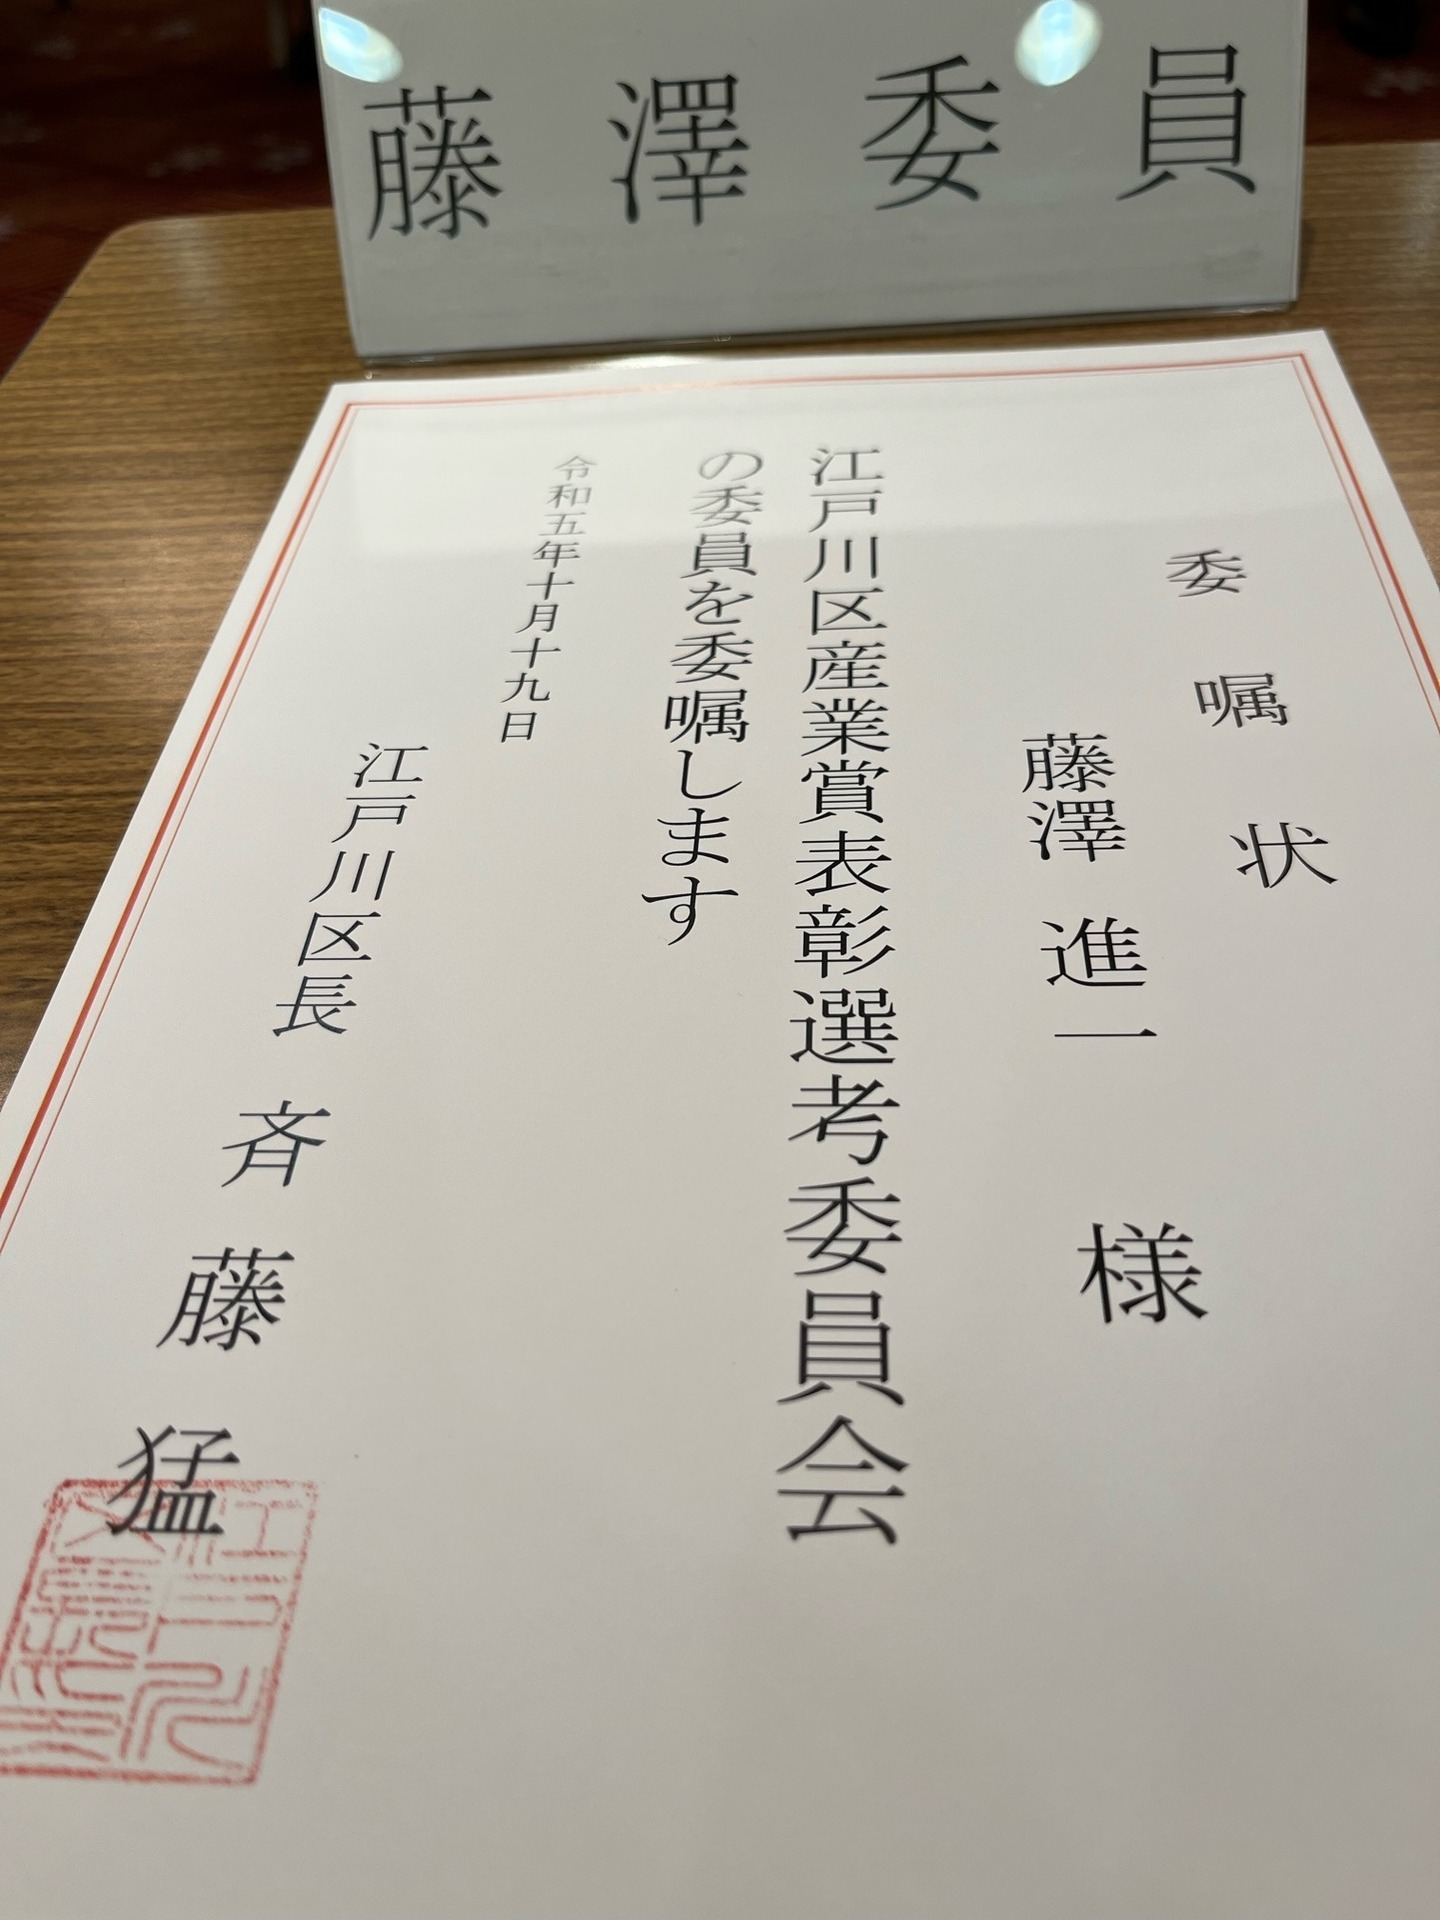 藤澤委員
委嘱状
藤澤 進一 様
江戸川区産業賞表彰選考委員会
の委員を委嘱します
令和五年十月十九日
江戸川区長 斉藤 猛